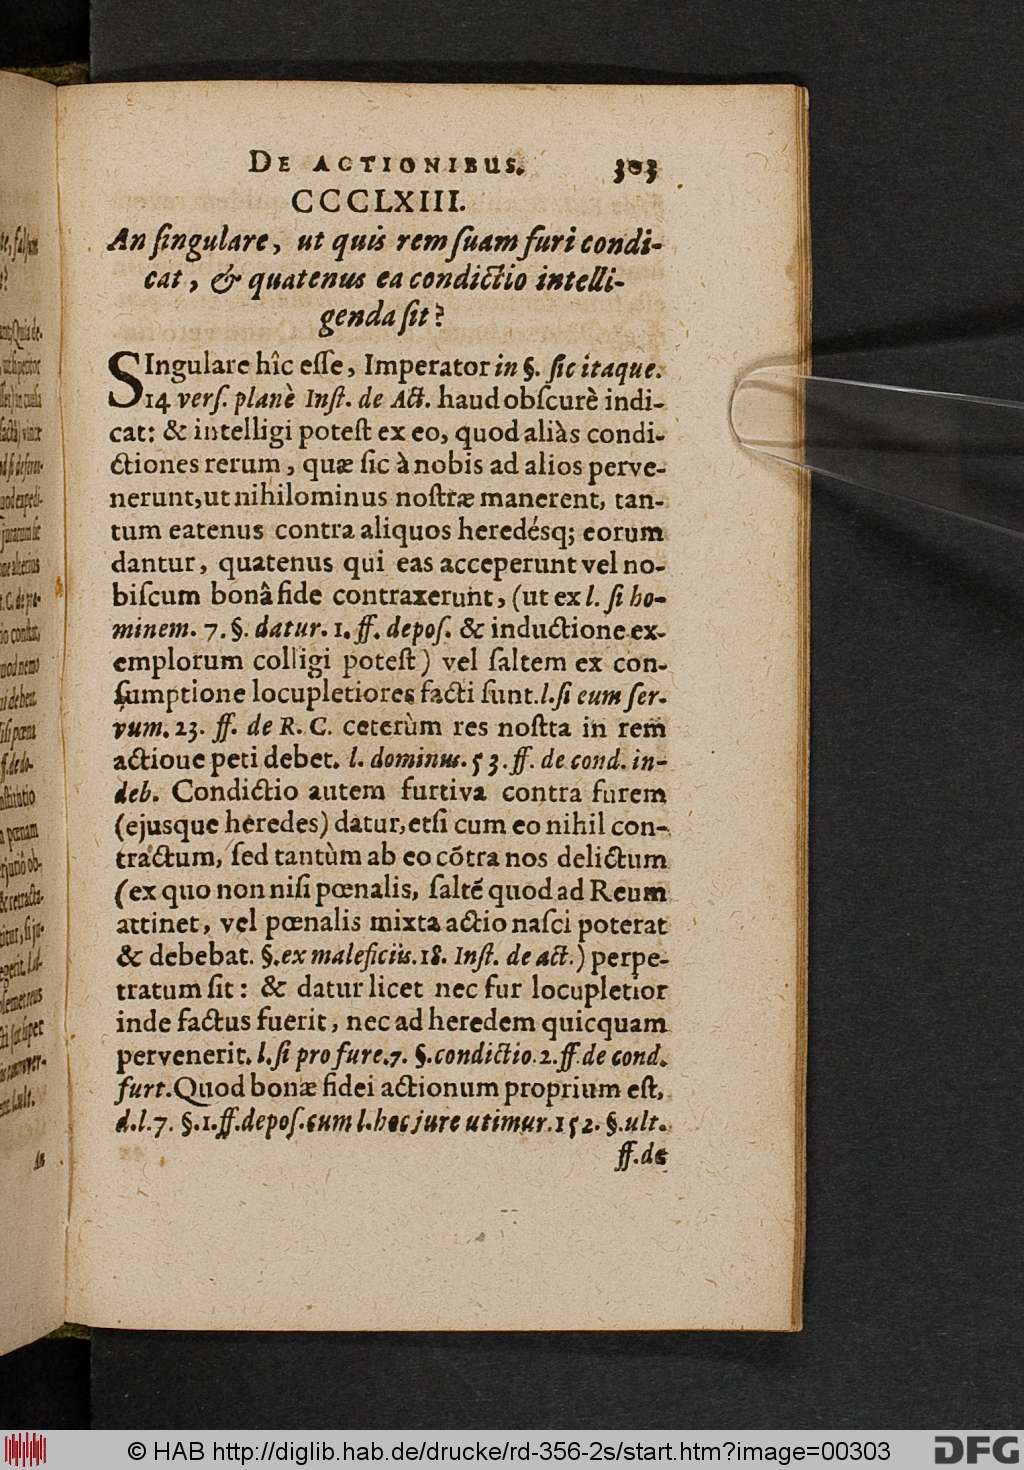 DE ACTIONIBUS. 303
CCCLXIII.
An ſingulare, ut quis rem ſuam furi condi-
cat, & quatenus ea condictio intelli-
genda ſit?
SIngulare hîc eſſe, Imperator in §. ſic itaque.
14 verſ. planè Inſt. de Act. haud obſcurè indi-
cat: & intelligi poteſt ex eo, quod aliàs condi-
ctiones rerum, quæ ſic à nobis ad alios perve-
nerunt, ut nihilominus noſtræ manerent, tan-
tum eatenus contra aliquos heredésq; eorum
dantur, quatenus qui eas acceperunt vel no-
biſcum bonâ fide contraxerunt, (ut ex l. ſi ho-
minem. 7. §. datur. 1. ff. depoſ. & inductione ex-
emplorum colligi poteſt) vel ſaltem ex con-
ſumptione locupletiores facti ſunt. l. ſi eum ſer-
vum. 23. ff. de R. C. ceterùm res noſtta in rem
actioue peti debet. l. dominus. 53. ff. de cond. in-
deb. Condictio autem furtiva contra furem
(ejusque heredes) datur, etſi cum eo nihil con-
tractum, ſed tantùm ab eo cõtra nos delictum
(ex quo non niſi pœnalis, ſaltẽ quod ad Reum
attinet, vel pœnalis mixta actio naſci poterat
& debebat. §. ex maleficiis. 18. Inſt. de act.) perpe-
tratum ſit: & datur licet nec fur locupletior
inde factus fuerit, nec ad heredem quicquam
pervenerit. l. ſi pro fure. 7. §. condictio. 2. ff. de cond.
furt. Quod bonæ fidei actionum proprium eſt,
d. l. 7. §. 1. ff. depoſ. cum l. hoc jure utimur. 152. §. ult.
ff. de
© HAB http://diglib.hab.de/drucke/rd-356-2s/start.htm?image=00303
DFG